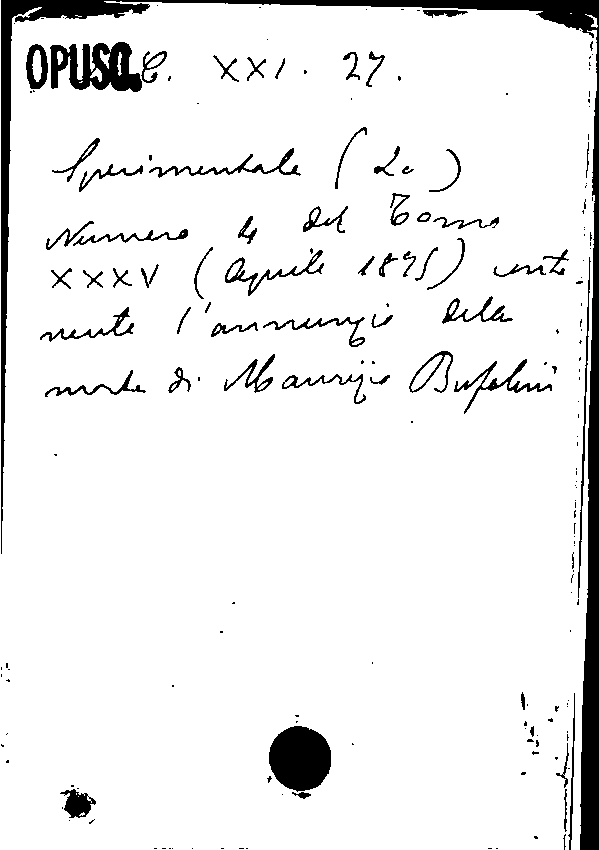 OPUSC. C. XXI. 27.
Sperimentale (Lo)
Numero 4 del Tomo
XXXV (Aprile 1875) conte
nente l'annunzio della
morte di Maurizio Bufalini